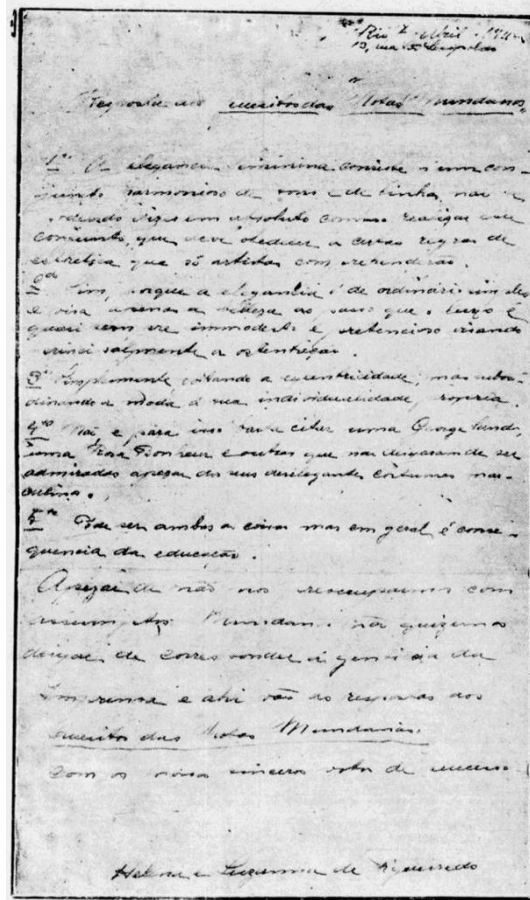 Rio 7 Abril
Resposta aos quesitos das "Notas Mundanas"
1º A elegancia feminina consiste n'um con-
junto harmonioso de tons e de linha, não se
podendo dizer em absoluto como realizar este
conjunto, que deve obedecer a certas regras de
esthetica que só artistas comprehenderão.
Sim, porque a elegancia é de ordinario simples
e visa apenas a belleza ao passo que o luxo é
quasi sempre immodesto e pretencioso visando
principalmente a ostentação.
3º Simplesmente evitando a excentricidade, mas subor-
dinando a moda á sua individualidade propria.
4º Não, e para isso basta citar uma George Sand,
uma Rosa Bonheur e outras que não deixaram de ser
admiradas apezar dos seus deselegantes costumes mas-
culinos.
5º Pode ser ambas as coisas mas em geral é conse-
quencia da educação.
Apezar de não nos preoccuparmos com
assumptos mundanos não quizemos
deixar de corresponder á gentileza da
Imprensa e ahi vão as respostas aos
quesitos das Notas Mundanas.
Com os nossos sinceros votos de successo
Helena e Suzanna de Figueiredo